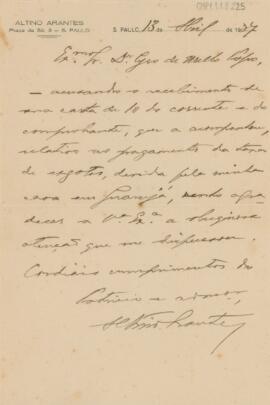 ALTINO ARANTES
Praça da Sé, 3 — S. PAULO
S. PAULO, 13 de Abril de 1937
Exmo. Sr. Dr. Cyro de Mello
— accusando o recebimento de
sua carta de 10 do corrente e do
comprovante, que a acompanhou,
relativo ao pagamento da taxa
de esgotos, devida pela minha
casa em Guarujá, venho agra-
decer a Va. Exa. a obsequiosa
attenção que me dispensou.
Cordiais cumprimentos do
Patricio e
Altino Arantes